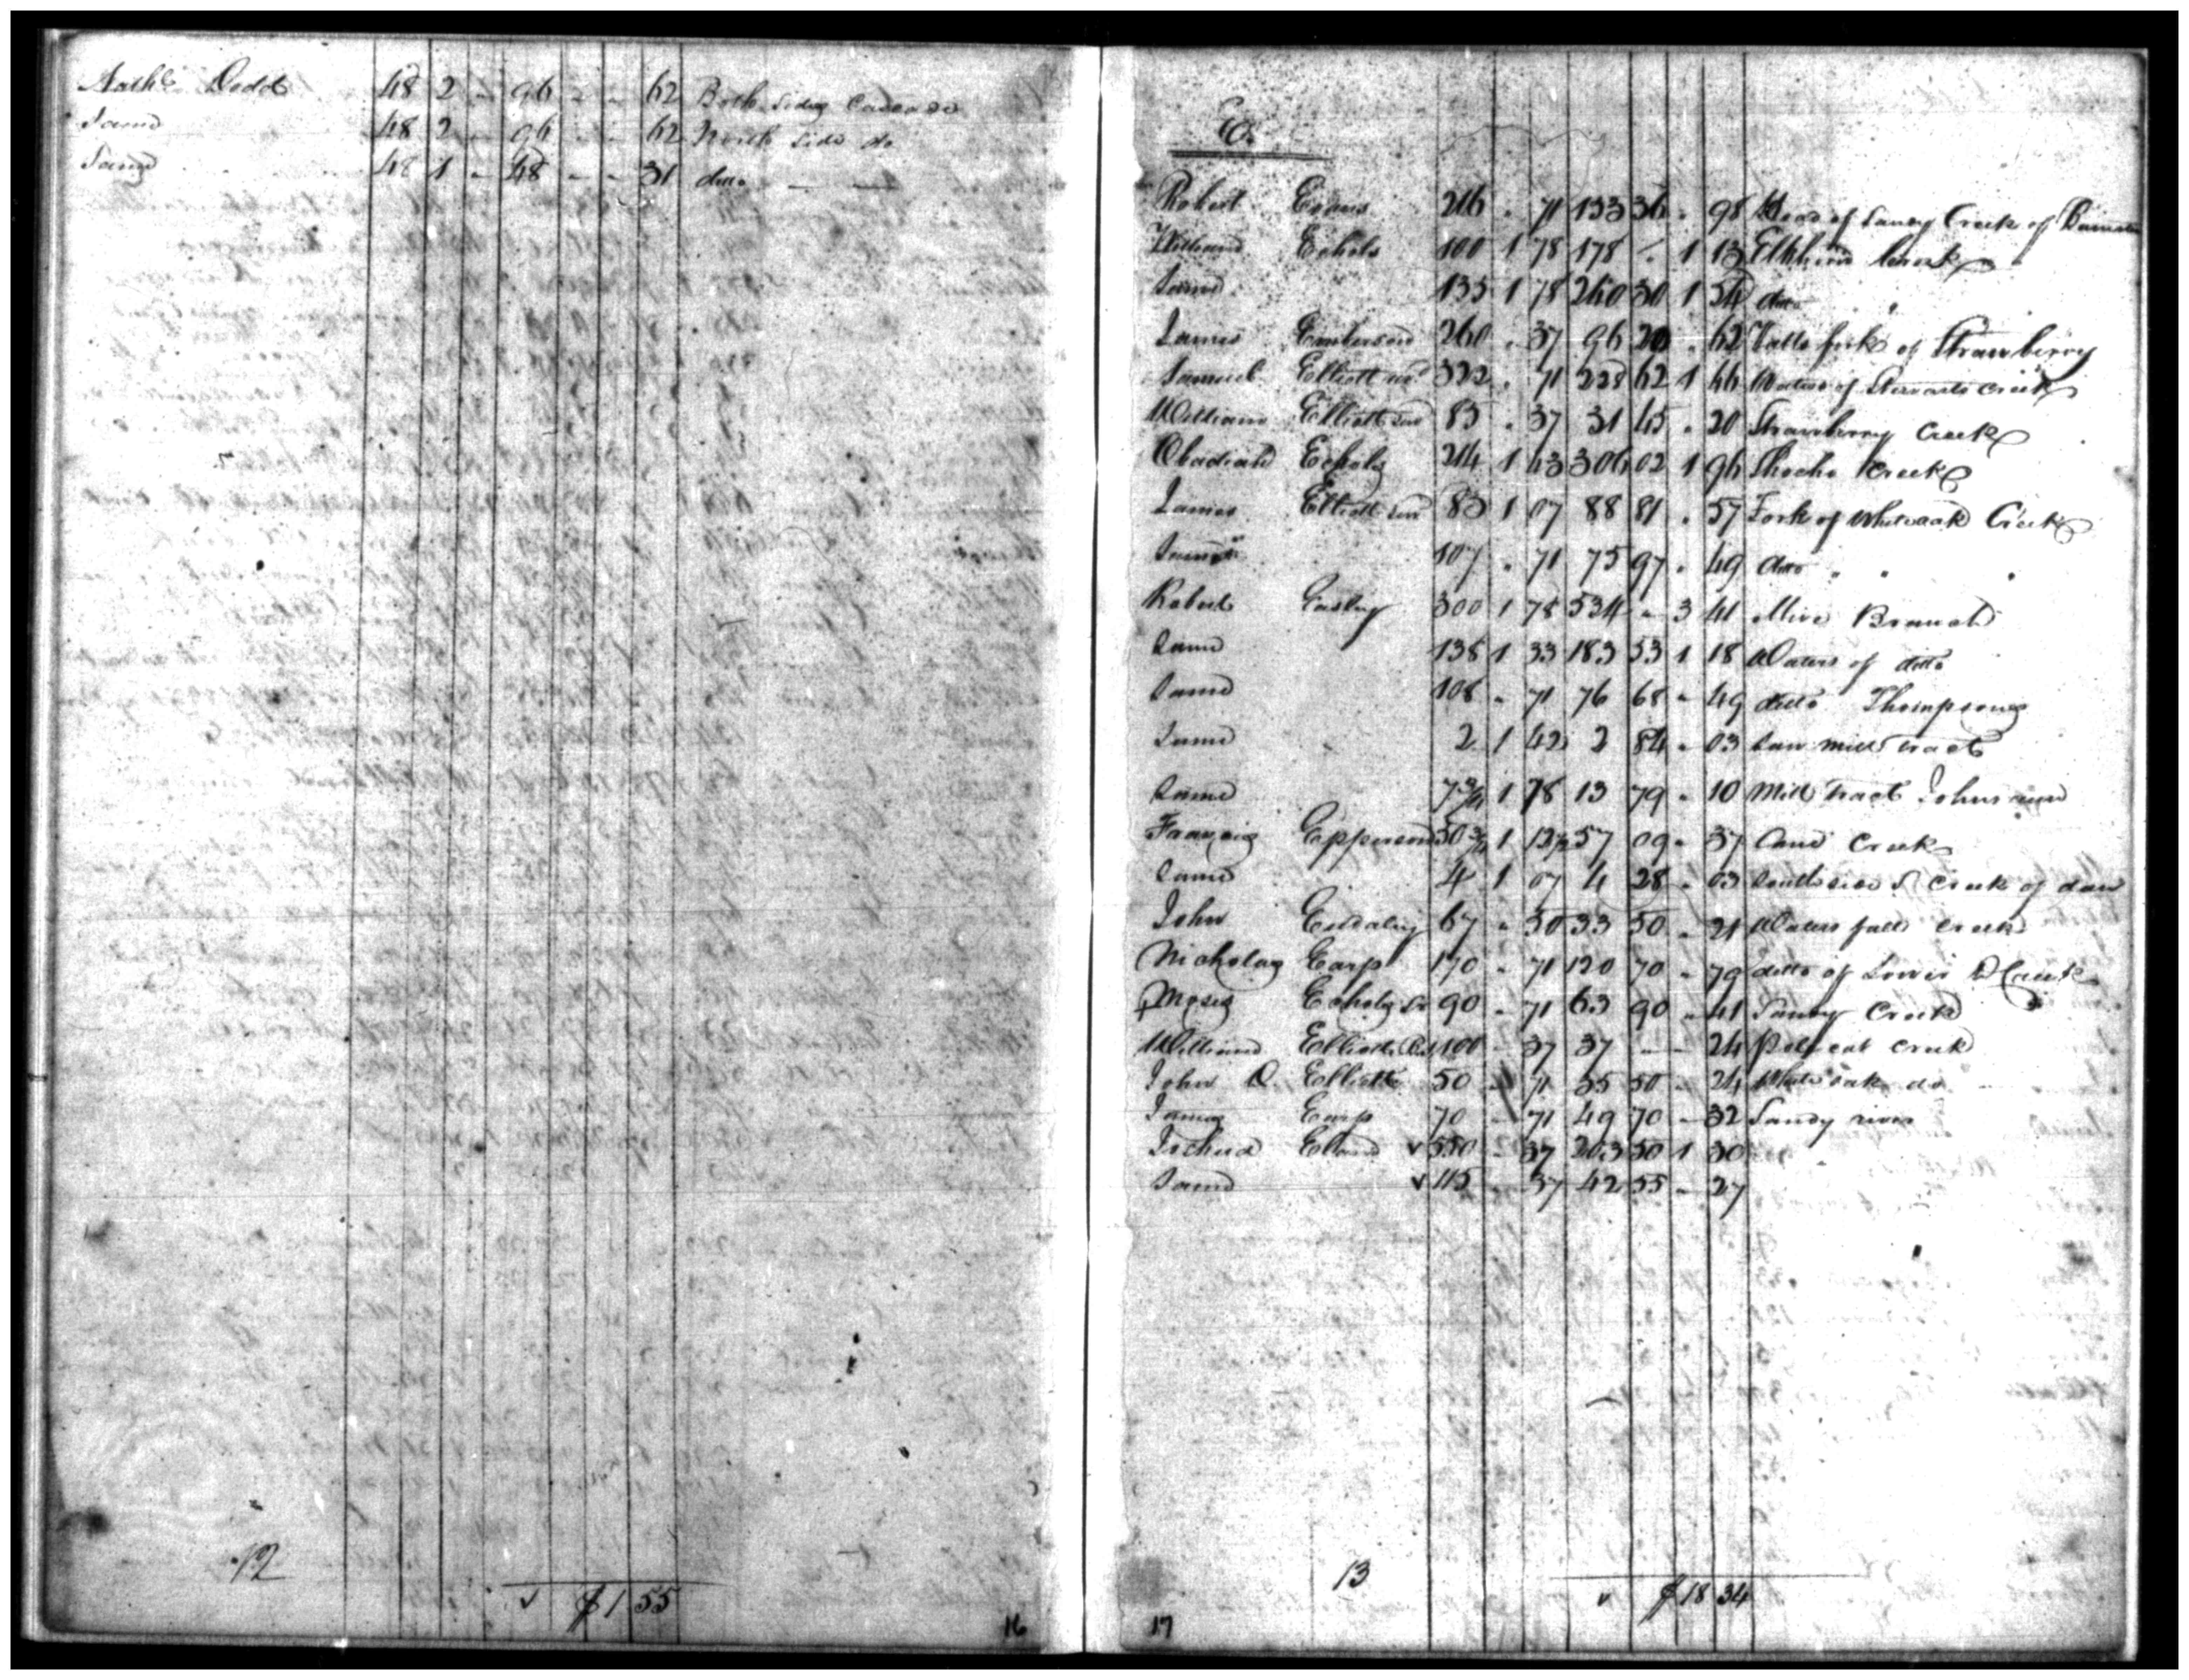 Nathl Dodd 48 2 - 96 - - 62 Both sides Cascade
Same 48 2 - 96 - - 62 North side do
Same 48 1 - 48 - - 31 ditto
12
$ 1 55
16
E.
Robert Evans 216 . 71 153 36 . 98 Head of Sandy Creek of
William Echols 100 1 78 178 - 1 13 Elkhorn Creek
Same 135 1 78 240 30 1 54 ditto
James Emberson 260 . 37 96 20 . 62 fork of Strawberry
Samuel Elliott 322 . 71 228 62 1 46 Waters of Stewarts creek
William Elliott 85 . 37 31 45 . 20 Strawberry Creek
Obadiah Echols 214 1 43 306 02 1 96 Shocko Creek
James Elliott 83 1 07 88 81 . 57 Fork of Whiteoak Creek
Same 107 . 71 75 97 . 49 ditto
Robert Easley 300 1 78 534 - 3 41 Mire Branch
Same 138 1 33 183 53 1 18 Waters of ditto
Same 108 - 71 76 68 - 49 ditto Thompsons
Same 2 1 42 2 84 . 03 Saw mill tract
Same 7 3/4 1 78 13 79 - 10 Mill tract Johnson
Francis Epperson 50 3/4 1 12 1/2 57 09 - 37 Cane Creek
Same 4 1 07 4 28 . 03 South side S Creek of dan
John 67 - 50 33 50 - 21 Waters fall Creek
Nicholas Earp 170 - 71 120 70 - 79 ditto of
Moses Echols Sr 90 - 71 63 90 - 41 Sandy Creek
William Elliott 100 - 37 37 - - 24 Polecat creek
John D. Elliott 50 - 71 35 50 - 24 White oak do
James Earp 70 - 71 49 70 - 32 Sandy river
550 - 37 203 50 1 30
Same 115 - 37 42 55 - 27
13
$ 18 34
17